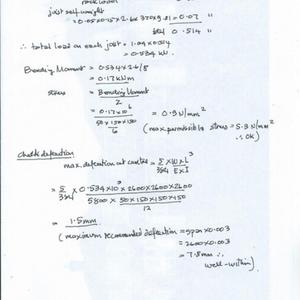 joist self-weight
= 0.05×0.15×2.6×370×9.81 = 0.07
kN 0.514
∴ total load on each joist = 1.04×0.514
= 0.534 kN
Bending Moment = 0.534×2.6/8
= 0.17 kNm
stress = Bending Moment
Z
= 0.17×10⁶
50×150×150
6
= 0.9 N/mm²
(max. permissible stress = 5.3 N/mm²
∴ OK)
Check deflection
max. deflection at centre = 5 × W × L³
384 E × I
= 5 × 0.534×10³ × 2600×2600×2600
384 5800 × 50×150×150×150
12
= 1.5mm
(maximum recommended deflection = span×0.003
= 2600×0.003
= 7.8mm ∴
well-within)